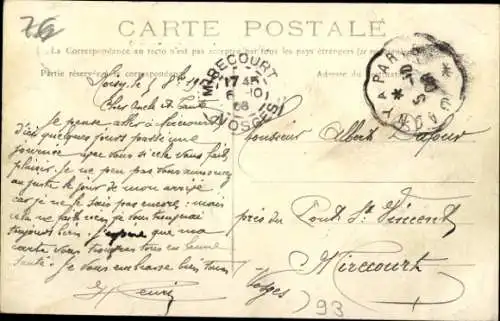 76
CARTE POSTALE
La Correspondance au recto n'est pas acceptée par tous les pays étrangers
Partie réservée à la correspondance
Adresse du
MIRECOURT
17 45
6 10
08
VOSGES
Cher Oncle et Tante
Je pense aller à Mirecourt
d'ici quelques jours passé une
journée que vous si cela vous fait
plaisir. Je ne peu pas vous annoncer
au juste le jour de mon arrivé
car je ne le sais pas encore, mais
cela ne fait rien je vous trouverai
toujours bien. J'espère que ma
carte vous trouvera tous en bonne
santé. Je vous embrasse bien tous
Henri
Monsieur Albert
près du Pont St Vincent
Mirecourt
Vosges
93